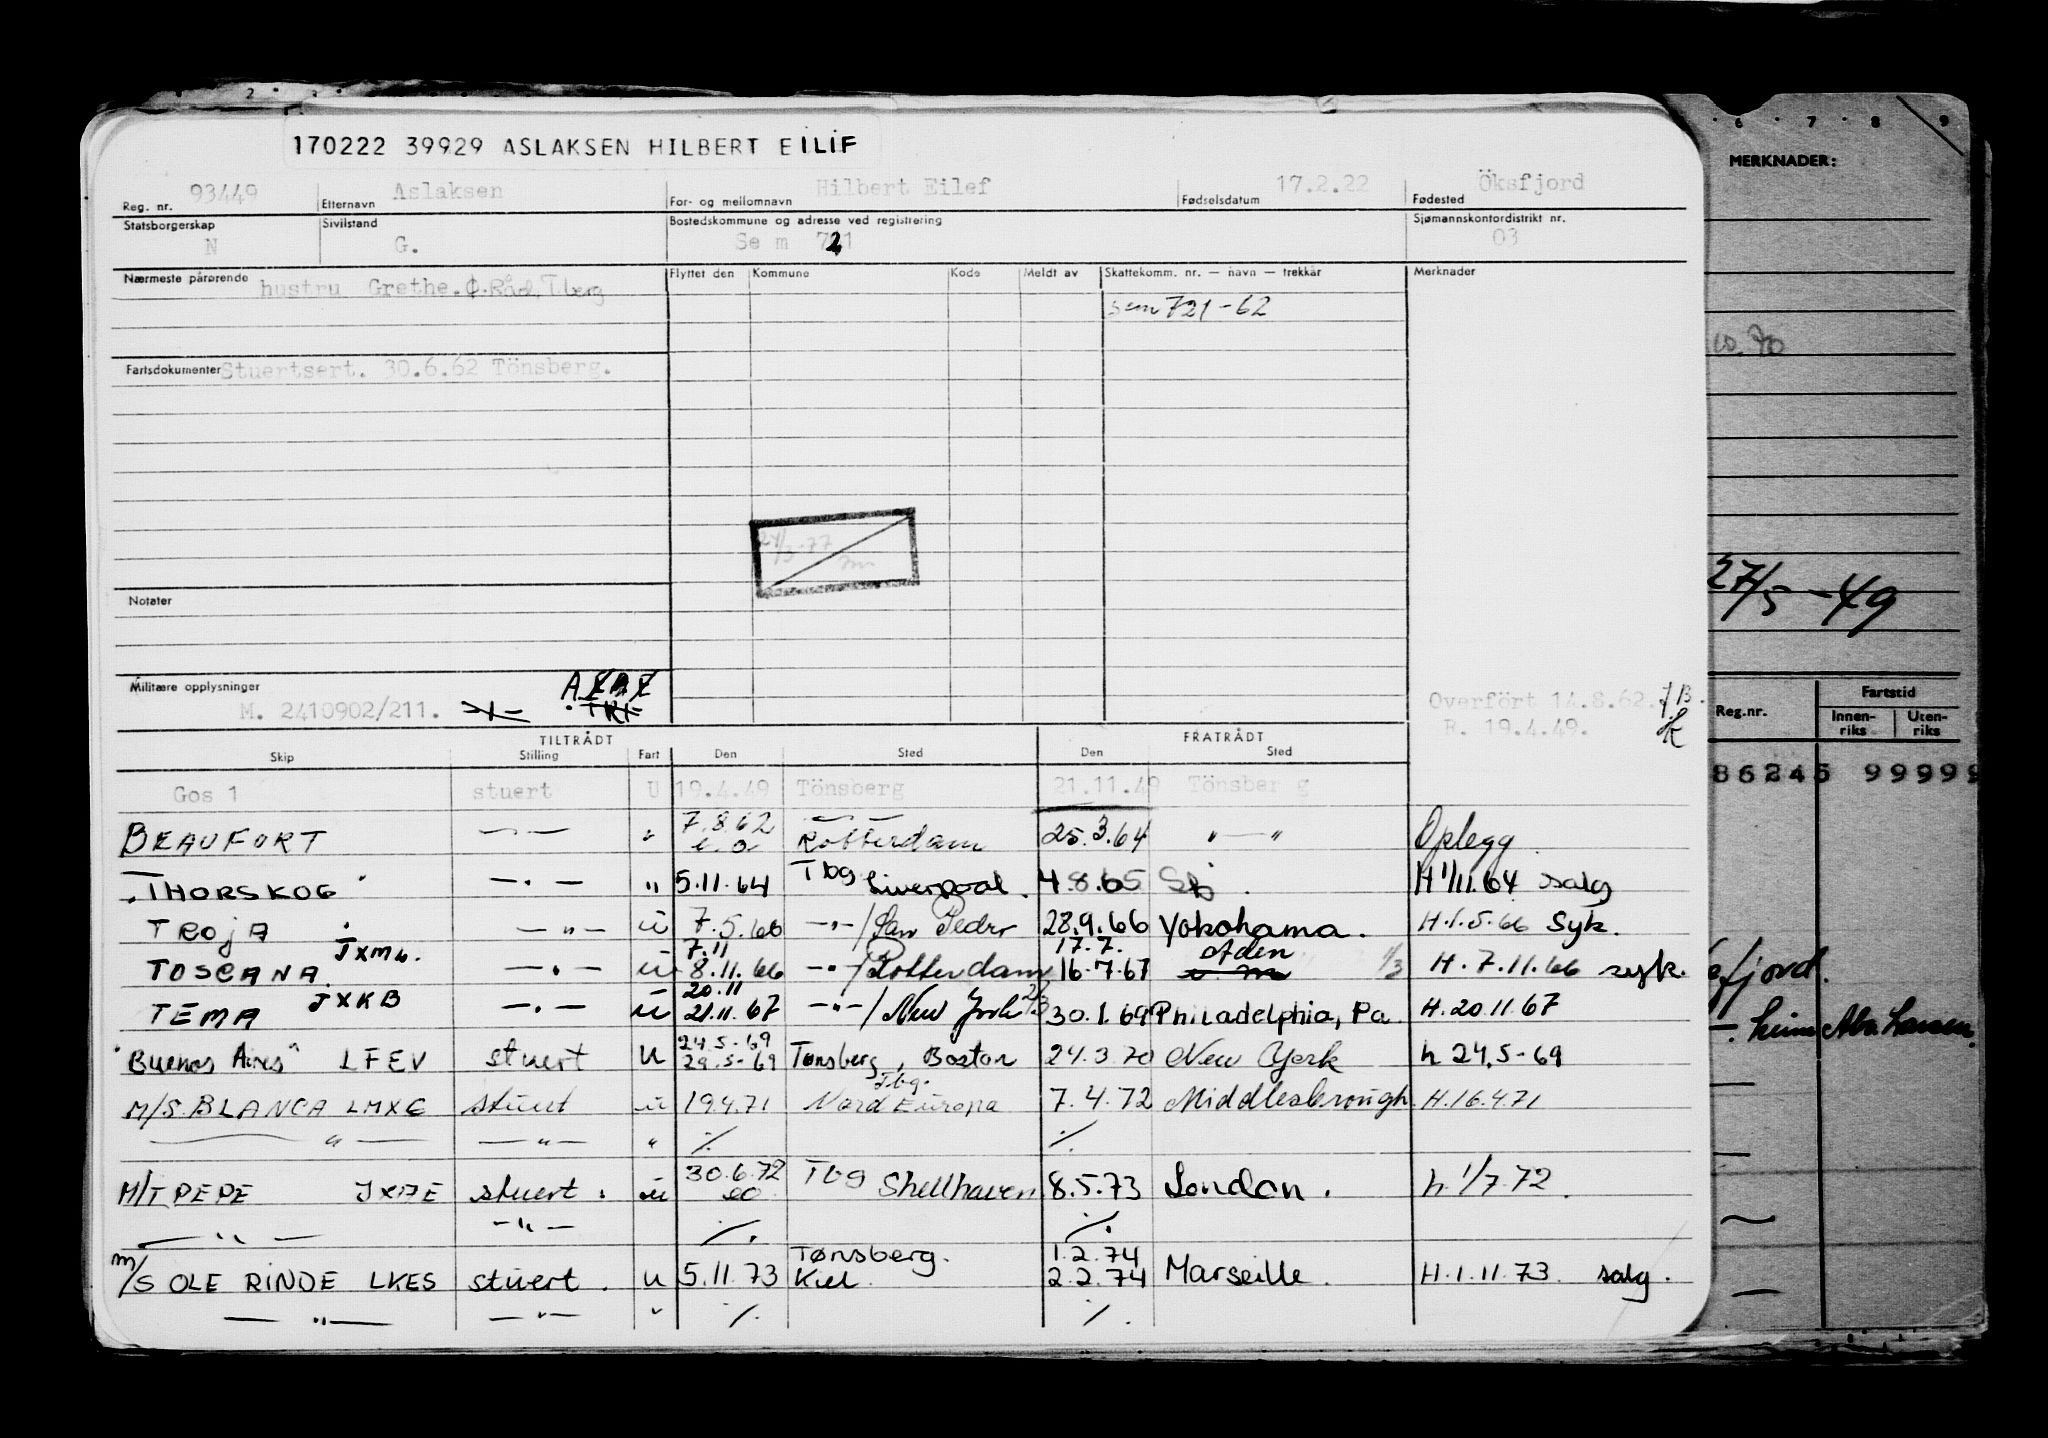 170222 39929 ASLAKSEN HILBERT EILIF
Reg. nr. 93449 Etternavn Aslaksen For- og mellomnavn Hilbert Eilef Fødselsdatum 17.2.22 Fødested Öksfjord
Statsborgerskap N Sivilstand G. Bostedskommune og adresse ved registrering Sem 721 Sjømannskontordistrikt nr. 03
Nærmeste pårørende hustru Grethe. Flyttet den Kommune Kode Meldt av Skattekomm. nr. — navn — trekkår Merknader
Sem 721-62
Fartsdokumenter Stuertsert. 30.6.62 Tönsberg.
Notater
Militære opplysninger
M. 2410902/211.
Overfört 14.8.62.
R. 19.4.49.
TILTRÅDT FRATRÅDT
Skip Stilling Fart Den Sted Den Sted
Gos 1 stuert U 19.4.49 Tönsberg 21.11.49 Tönsberg
BEAUFORT — — " 7.8.62 Rotterdam 25.3.64 " — " Oplegg
THORSKOG — . — " 5.11.64 Tbg Liverpool. 4.8.65 H 1/11.64 salg
TROJA — " — u 7.5.66 — " — / San Pedro 28.9.66 Yokohama. H.1.5.66 Syk.
7.11 17.7. Aden
TOSCANA JXMG. — . — u 8.11.66 — " — / Rotterdam 16.7.67 H. 7.11.66 syk.
20.11
TEMA JXKB — . — u 21.11.67 — " — / New York 30.1.69 Philadelphia, Pa. H.20.11.67
24.5-69
"Buenos Aires" LFEV stuert u 29.5-69 Tønsberg, Boston 24.3.70 New York h 24.5-69
Tbg.
M/S. BLANCA LMXG stuert u 19.4.71 Nord Europa 7.4.72 Middlesbrough. H.16.4.71
— " — — " — " ./. ./.
30.6.72
M/T PEPE stuert. u Tbg Shellhaven 8.5.73 London. h. 1/7.72.
— " — — " — ./. ./.
Tønsberg. 1.2.74
M/S OLE RINDE LKES stuert. u 5.11.73 Kiel. 2.2.74 Marseille. H.1.11.73. salg.
— " — — " — " ./. ./.
6 7 8 9
MERKNADER:
27/5 -49
Reg.nr. Fartstid
Innen-riks Uten-riks
86245 99999
fjord.